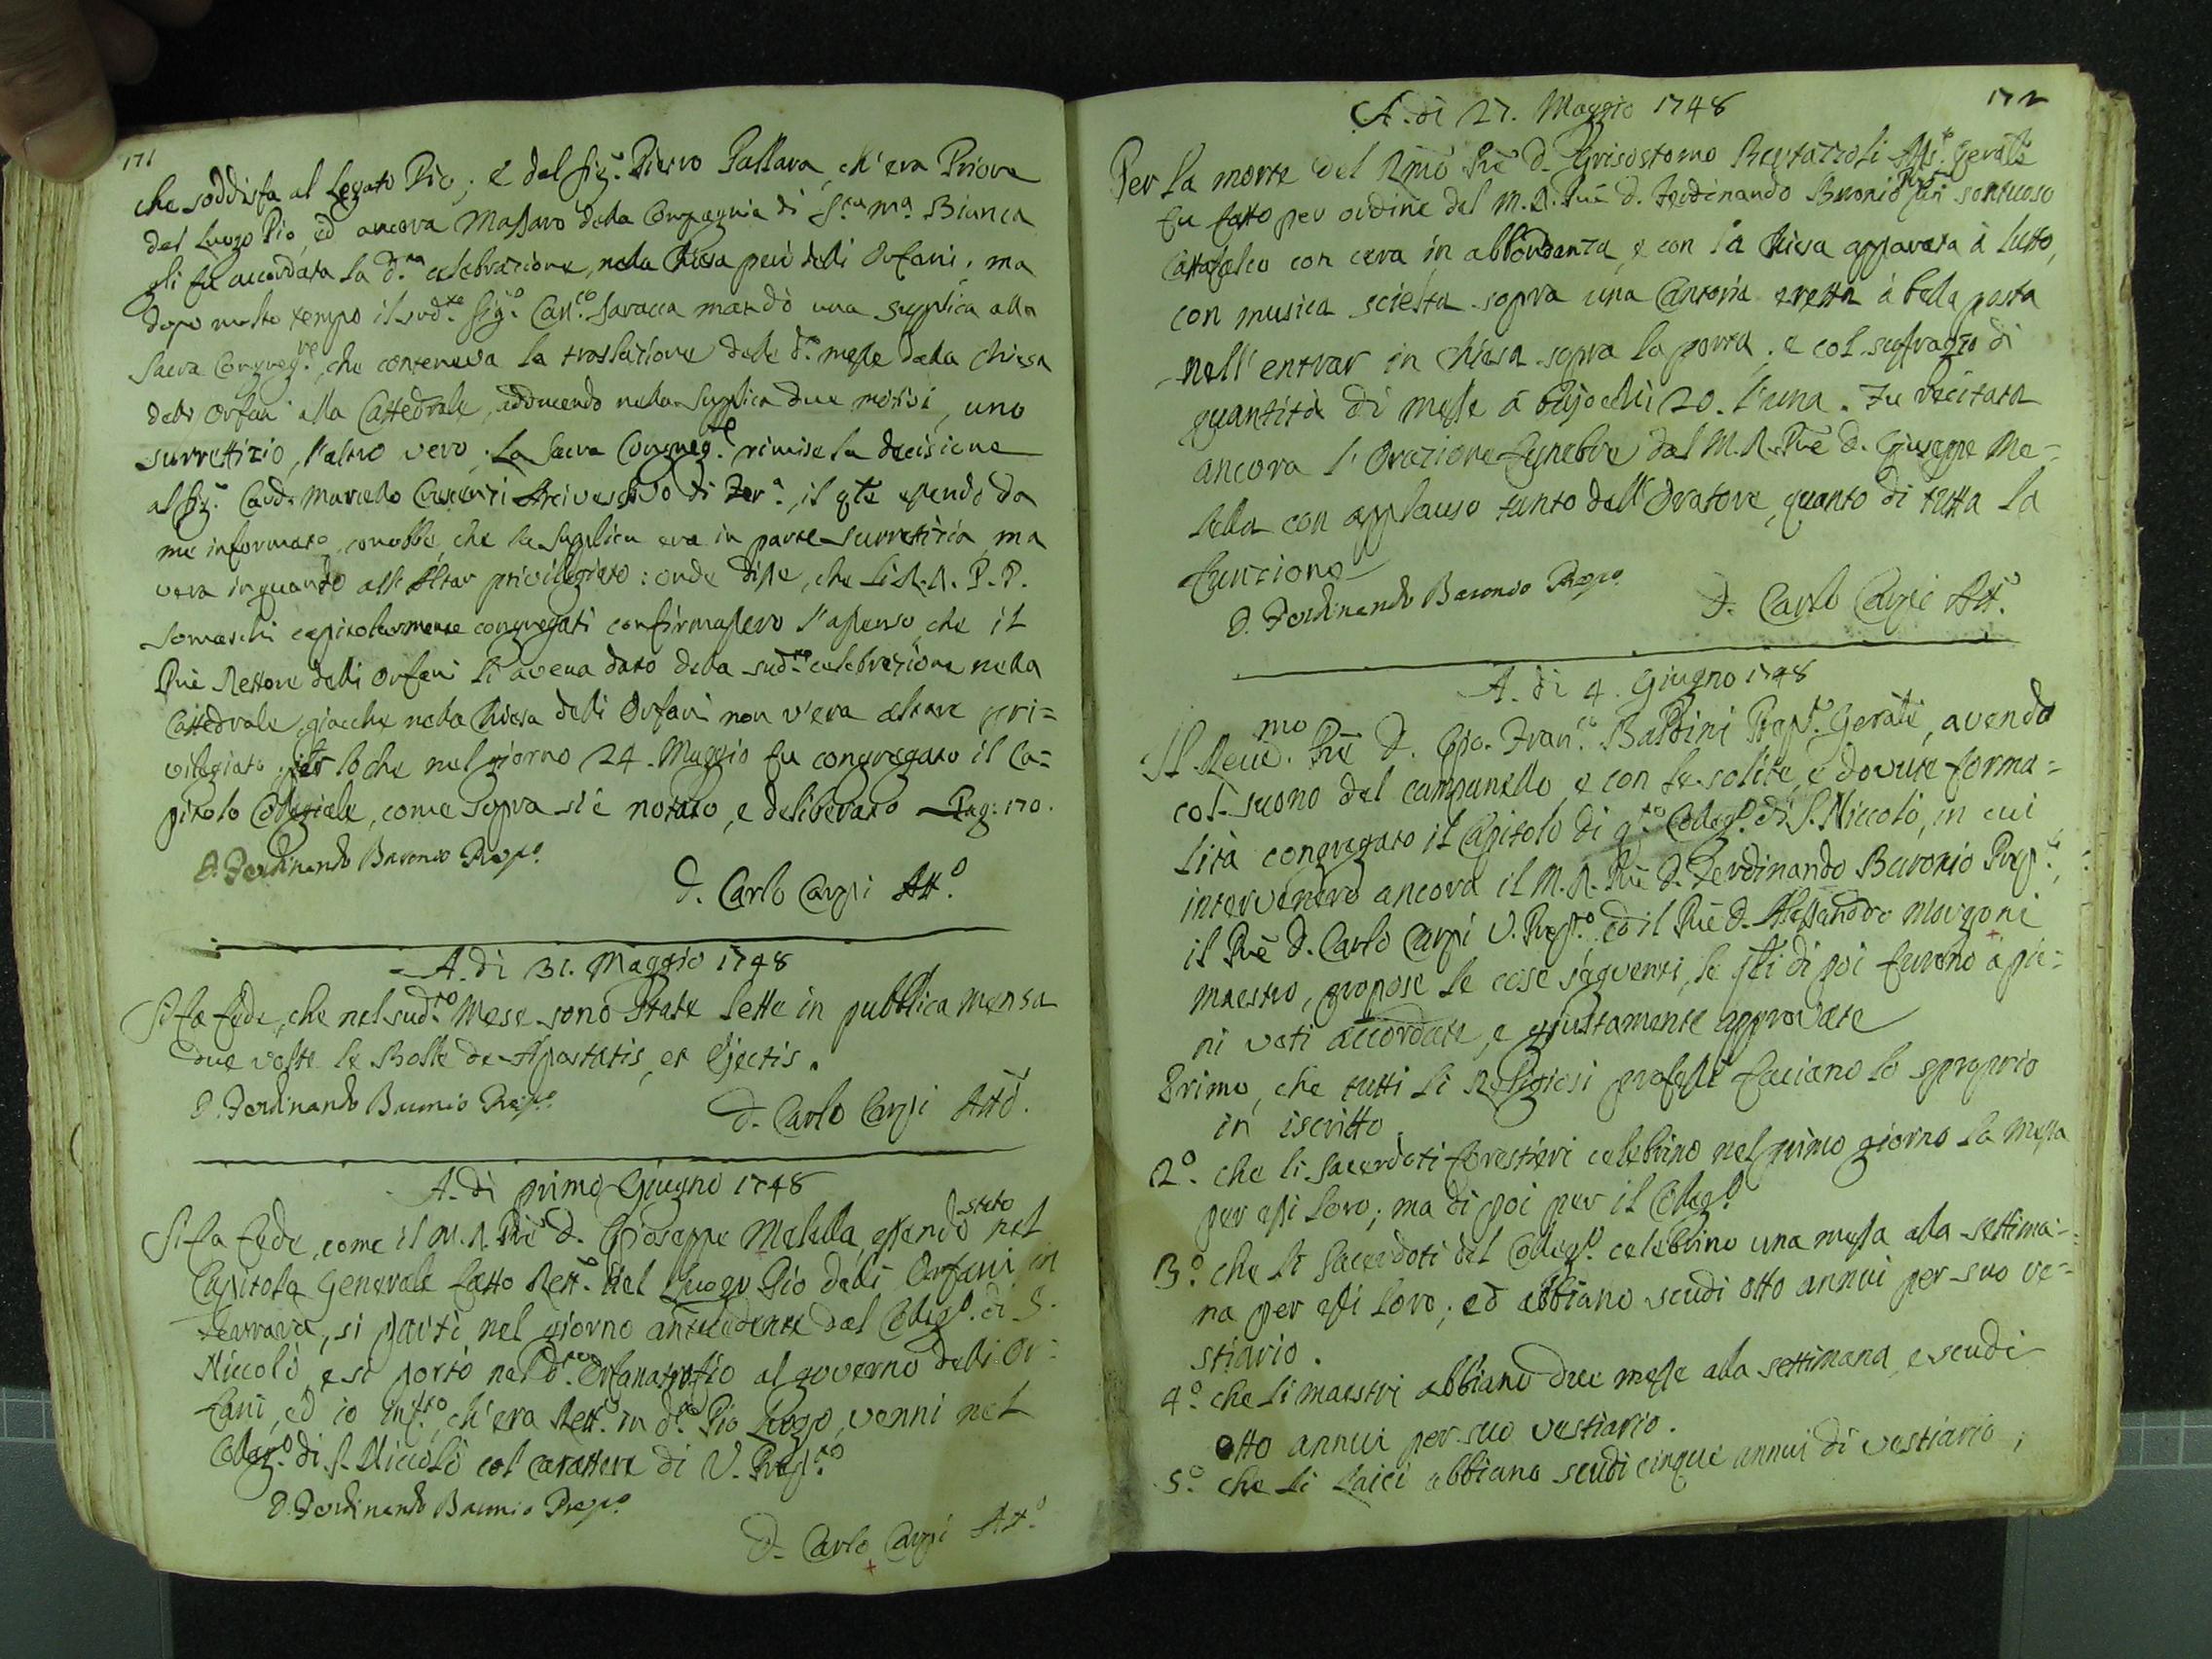 171
che soddisfa al Legato Pio; e dal Sig.r Pietro Pallara, ch'era Priore
del Luogo Pio, ed ancora Massaro della Compagnia di S.ta M.a Bianca
gli fu accordata la d.ta celebrazione, nella Chiesa però delli Orfani, ma
dopo molto tempo il sud.to Sig.o Can.co Saracca mandò una supplica alla
Sacra Congreg.ne, che conteneva la traslazione delle d.e messe dalla Chiesa
delli Orfani alla Cattedrale, adducendo nella Supplica due motivi, uno
surrettizio, l'altro vero. La Sacra Congreg.ne rimise la decisione
al Sig.r Card. Marcello Crescenzi Arcivescovo di Fer.a, il qle essendo da
me informato, conobbe, che la Supplica era in parte surretizia, ma
vera in quanto all'Altar privilegiato: onde disse, che li R.R. P.P.
Somaschi capitolarmente congregati confirmassero l'assenso, che il
Pñe Rettore delli Orfani li aveva dato della sud.ta celebrazione nella
Cattedrale, giacche nella Chiesa delli Orfani non v'era altare pri=
vilegiato; per lo che nel giorno 24. Maggio fu congregato il Ca=
pitolo Collegiale, come sopra si è notato, e deliberato Pag: 170.
D. Ferdinando Baronio Prep.o
D. Carlo Carpi Att.o
A. di 31. Maggio 1748
Si fa fede, che nel sud.to Mese sono state lette in pubblica mensa
due volte le Bolle de Apostatis, et Ejectis.
D. Ferdinando Baronio Prep.o
D. Carlo Carpi Att.o
A. di primo Giugno 1748
Si fa fede, come il M. R. Pñe D. Gioseppe Melella, essendo stato nel
Capitolo Generale fatto Rett.e del Luogo Pio delli Orfani in
Ferrara, si partì nel giorno antecedente dal Colleg.o di S.
Niccolò, e si portò nel d.to Orfanatrofio al governo delli Or=
fani, ed io inf.tto, ch'era Rett.e in d.to Pio Luogo, venni nel
Colleg.o di S. Niccolò col carattere di V. Prep.to
D. Ferdinando Baronio Prep.o
D. Carlo Carpi Att.o
172
A. di 27. Maggio 1748
Per la morte del Rmo Pñe D. Grisostomo Bertazzoli Ass.te Gerale
fu fatto per ordine del M. R. Pñe D. Ferdinando Baronio Prep.to un sontuoso
Cattafalco con cera in abbondanza, e con la Chiesa apparata à lutto,
con musica scielta sopra una Cantoria eretta à bella posta
nell'entrar in Chiesa sopra la porta, e col suffragio di
quantità di messe à bajocchi 20. l'una. Fu recitata
ancora l'Orazione Funebre dal M. R. Pñe D. Giuseppe Me=
lella con applauso tanto dell'Oratore, quanto di tutta la
funzione
D. Ferdinando Baronio Prep.o
D. Carlo Carpi Att.o
A. di 4. Giugno 1748
Il Reud.mo Pñe D. Gio. Fran.co Baldini Prep.to Gerale, avendo
col suono del campanello, e con le solite, e dovute forma=
lità congregato il Capitolo di q.to Colleg.o di S. Niccolò, in cui
intervenero ancora il M. R. Pñe D. Ferdinando Baronio Prep.to,
il Pñe D. Carlo Carpi V. Prep.to, ed il Pñe D. Alessandro Morgoni
maestro, propose le cose seguenti, le qli di poi furono à pie=
ni voti accordate, e giustamente approvate
Primo, che tutti li Religiosi professi faciano lo sproprio
in iscritto.
2.o che li Sacerdoti forestieri celebrino nel primo giorno la messa
per essi loro; ma di poi per il Colleg.o
3.o che li Sacerdoti del Colleg.o celebrino una messa alla settima=
na per essi loro; ed abbiano scudi otto annui per suo ve=
stiario.
4.o che li maestri abbiano due messe alla settimana, e scudi
otto annui per suo vestiario.
5.o che li Laici abbiano scudi cinque annui di vestiario;